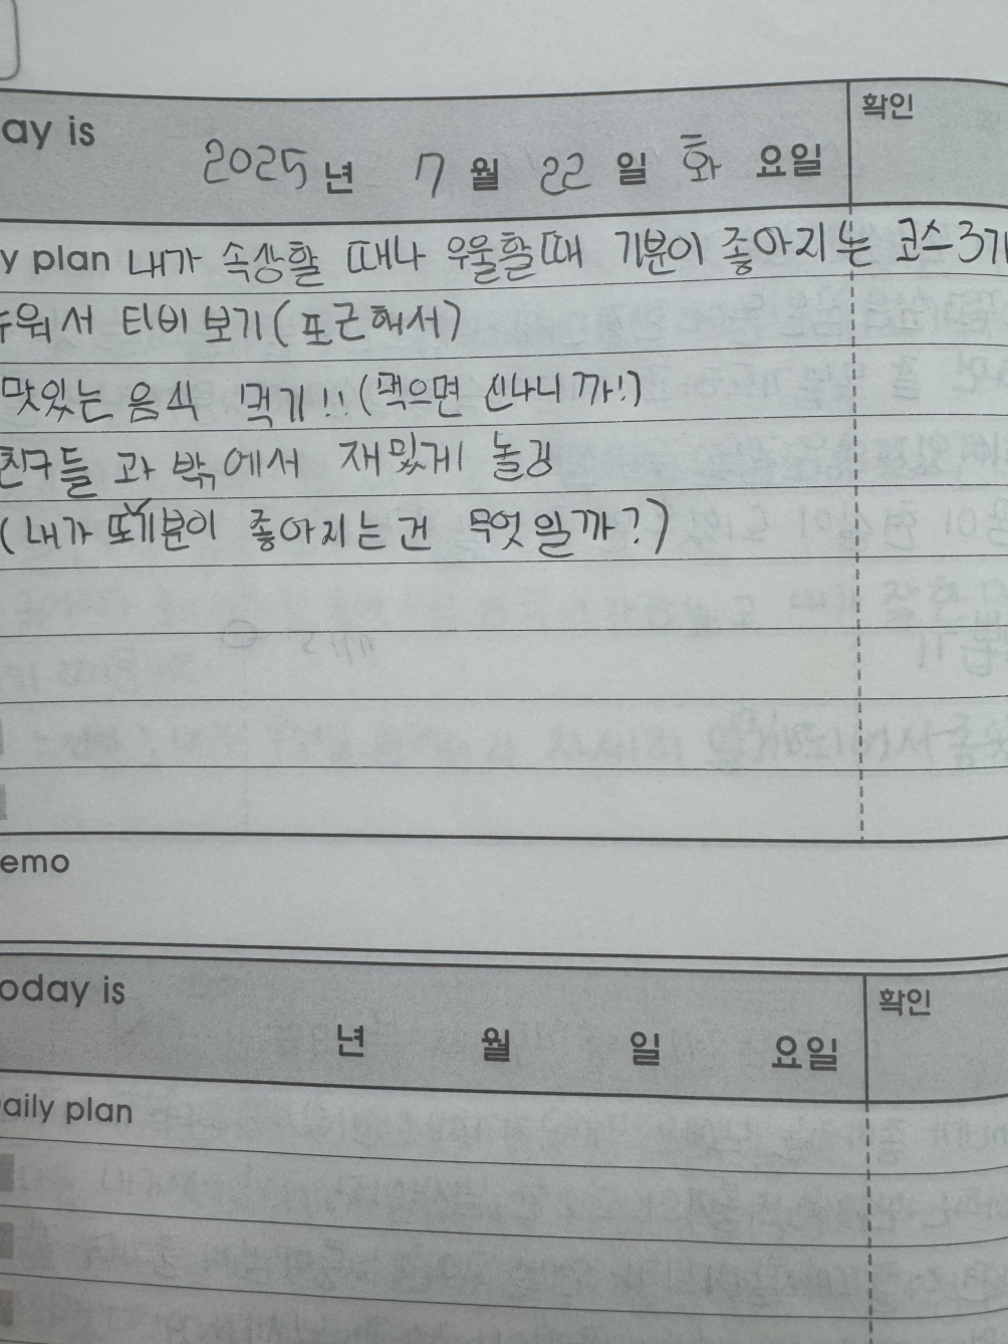 ay is
2025년 7월 22일 화요일
확인
y plan 내가 속상할 때나 우울할때 기분이 좋아지는 코스3가
누워서 티비 보기(포근해서)
맛있는 음식 먹기!!(먹으면 신나니까!)
친구들과 밖에서 재밌게 놀깅
(내가 또 기분이 좋아지는건 무엇일까?)
emo
oday is
년 월 일 요일
확인
aily plan